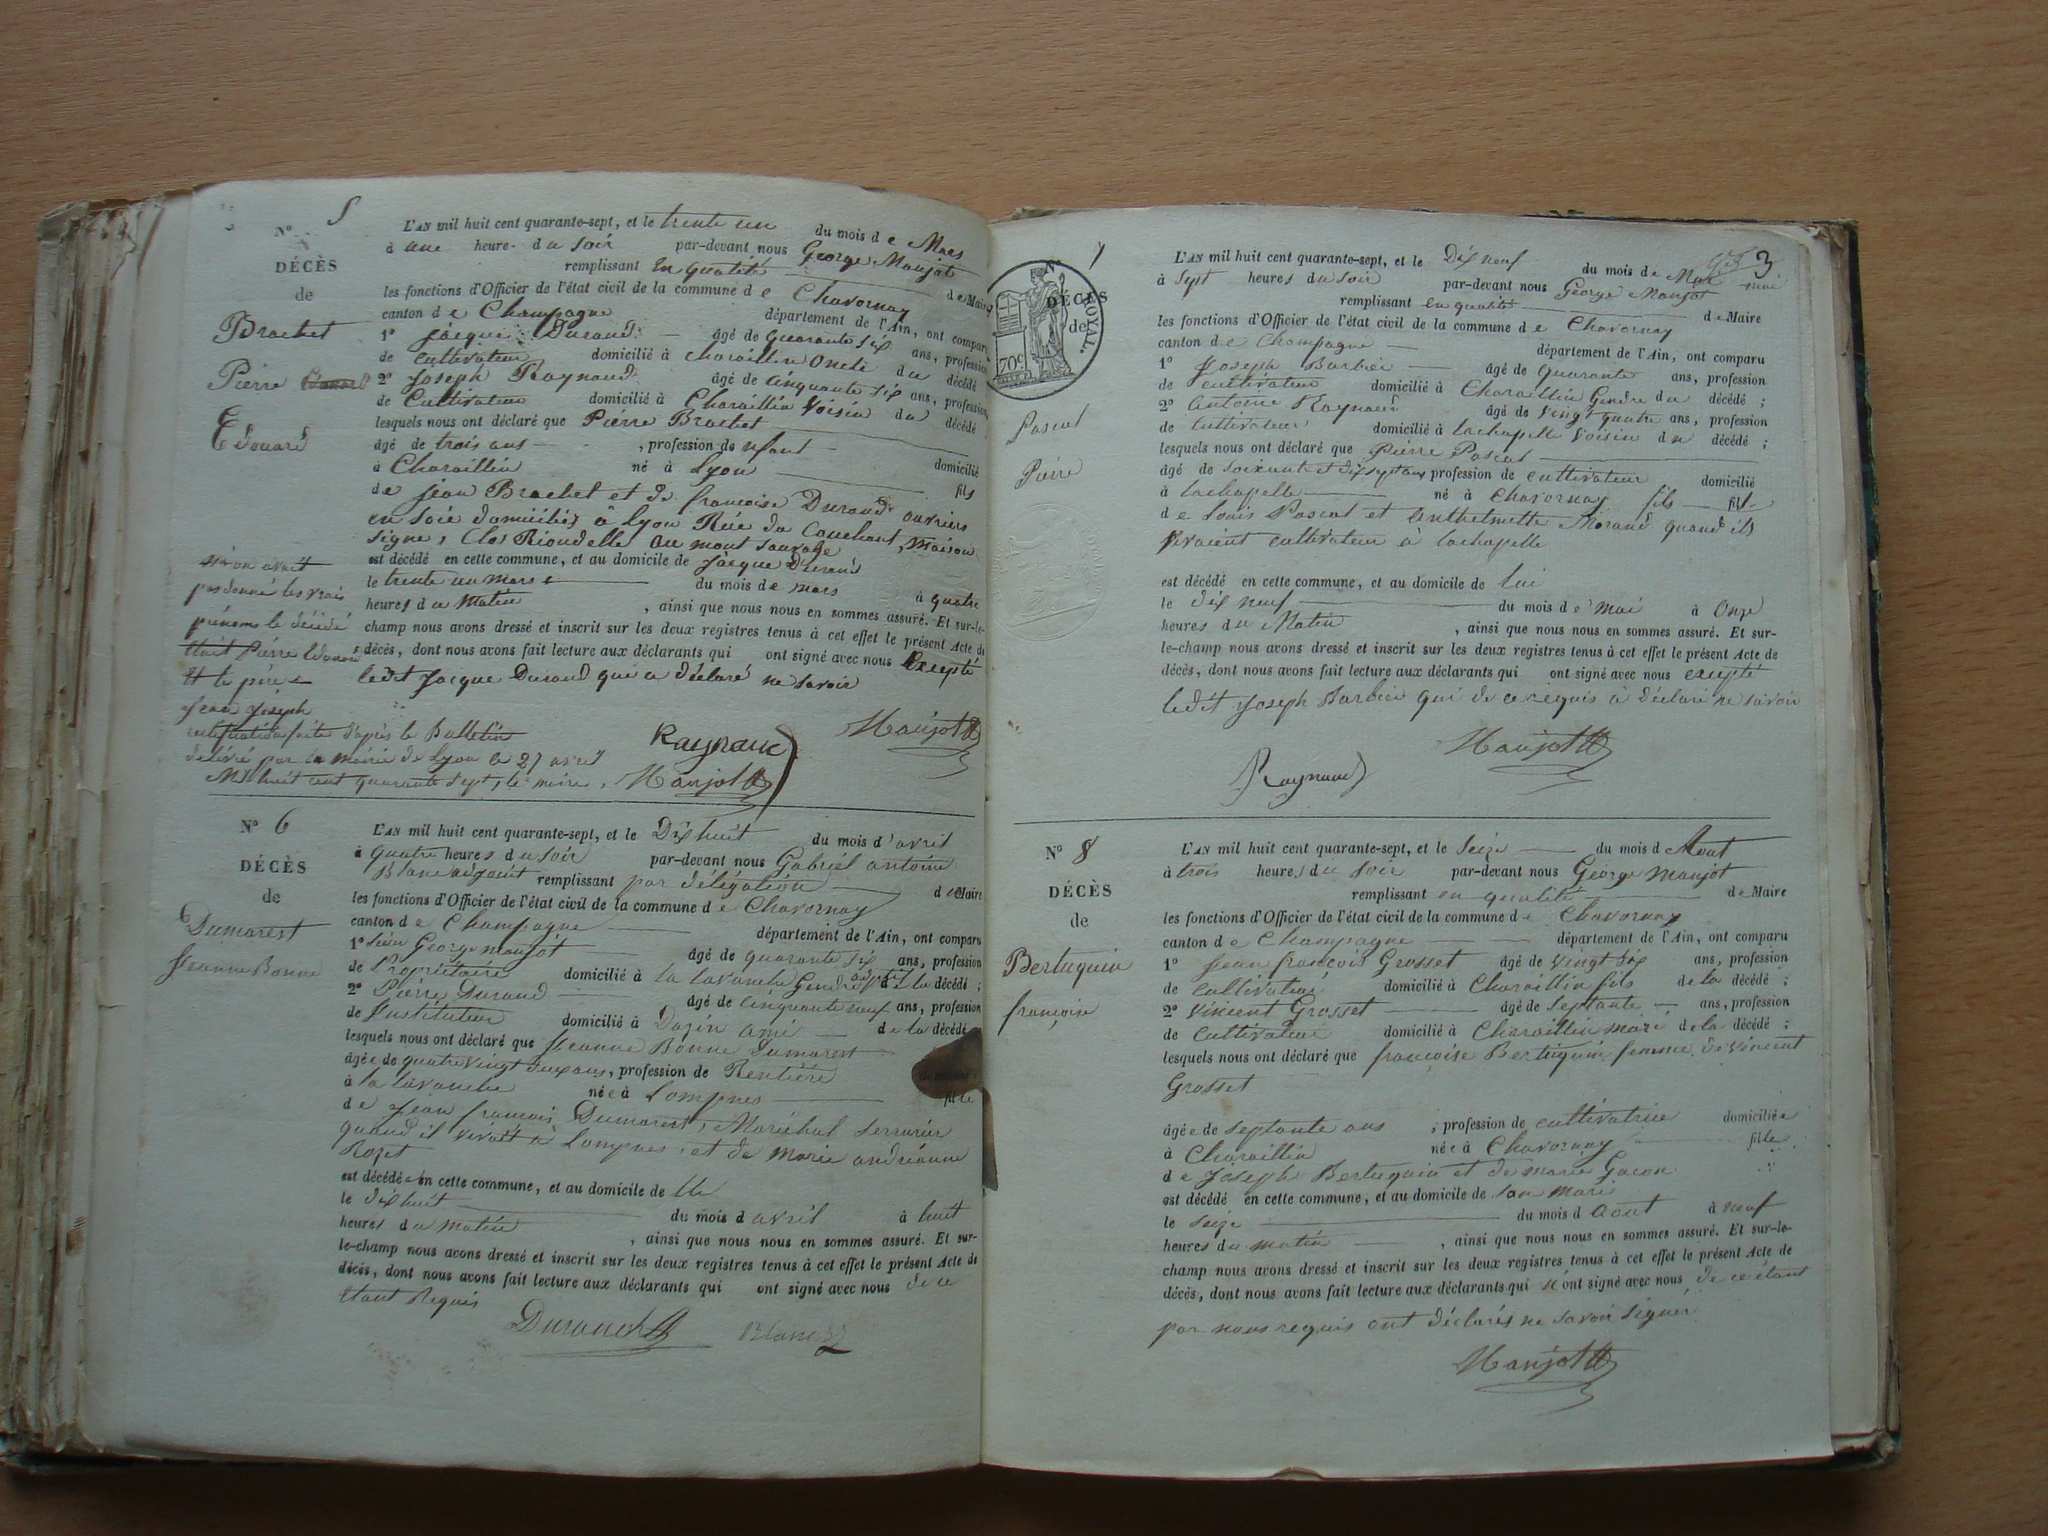 N° 5
DÉCÈS
de
Brachet
Pierre
Edouard
L'AN mil huit cent quarante-sept, et le trente un du mois de Mars
à une heure du soir par-devant nous George Manjot
remplissant en qualité de Maire
les fonctions d'Officier de l'état civil de la commune de Chavornay
canton de Champagne département de l'Ain, ont comparu
1° Jacque Durand âgé de quarante six ans, profession
de cultivateur domicilié à Charaillin Oncle du décédé
2° Joseph Raynaud âgé de cinquante six ans, profession
de Cultivateur domicilié à Charaillin Voisin du décédé
lesquels nous ont déclaré que Pierre Brachet
âgé de trois ans, profession de nfant domicilié
à Charaillin né à Lyon fils
de Jean Brachet et de françoise Durand ouvriers
en soie domiciliés à Lyon Rue du Couchant, maison
signe, Clos Rioudelle au mont sauvage
est décédé en cette commune, et au domicile de Jacque Durand
le trente un mars du mois de mars à quatre
heures du Matin, ainsi que nous nous en sommes assuré. Et sur-le-
champ nous avons dressé et inscrit sur les deux registres tenus à cet effet le présent Acte de
décès, dont nous avons fait lecture aux déclarants qui ont signé avec nous Excepté
ledit Jacque Durand qui a déclaré ne savoir
on avait
pas donné les vrais
prénoms le décédé
était Pierre Edouard
et le père
Jean Joseph
rectification faite d'après le Bulletin
délivré par la mairie de Lyon le 27 avril
Mil huit cent quarante sept, le maire.
Raynaud Manjot
Manjot
N° 6
DÉCÈS
de
Dumarest
Jeanne Bonne
L'AN mil huit cent quarante-sept, et le Dix huit du mois d'avril
à quatre heures du soir par-devant nous Gabriel antoine
Blanc adjoint remplissant par délégation de Maire
les fonctions d'Officier de l'état civil de la commune de Chavornay
canton de Champagne département de l'Ain, ont comparu
1° George manjot âgé de quarante six ans, profession
de Propriétaire domicilié à la lavanche Gendre de la décédé ;
2° Pierre Durand âgé de cinquante neuf ans, profession
de Instituteur domicilié à Dazin ami de la décédé
lesquels nous ont déclaré que Jeanne Bonne Dumarest
âgée de quatre vingt deux ans, profession de Rentière
à la lavanche née à Lompnes fille
de Jean françois Dumarest, Maréchal serrurier
quand il vivait à Lompnes, et de marie andréanne
Rozet
est décédée en cette commune, et au domicile de elle
le dix huit du mois d avril à huit
heures du matin, ainsi que nous nous en sommes assuré. Et sur-
le-champ nous avons dressé et inscrit sur les deux registres tenus à cet effet le présent Acte de
décès, dont nous avons fait lecture aux déclarants qui ont signé avec nous de ce
étant Requis
Durand Blanc
3
ROYAL.
70c
N° 7
DÉCÈS
de
Pascal
Pierre
L'AN mil huit cent quarante-sept, et le Dix neuf du mois de Mai
à sept heures du soir par-devant nous George Manjot
remplissant en qualité de Maire
les fonctions d'Officier de l'état civil de la commune de Chavornay
canton de Champagne département de l'Ain, ont comparu
1° Joseph Barbier âgé de quarante ans, profession
de cultivateur domicilié à Charaillin Gendre du décédé ;
2° Antoine Raynaud âgé de vingt quatre ans, profession
de cultivateur domicilié à lachapelle Voisin du décédé ;
lesquels nous ont déclaré que Pierre Pascal
âgé de soixante et dix sept ans profession de cultivateur domicilié
à lachapelle né à Chavornay fils
de Louis Pascal et Anthelmette Morand quand ils
vivaient cultivateur à lachapelle
est décédé en cette commune, et au domicile de lui
le dix neuf du mois de mai à Onze
heures du Matin, ainsi que nous nous en sommes assuré. Et sur-
le-champ nous avons dressé et inscrit sur les deux registres tenus à cet effet le présent Acte de
décès, dont nous avons fait lecture aux déclarants qui ont signé avec nous excepté
ledit Joseph Barbier qui de ce requis à déclaré ne savoir
Raynaud Manjot
N° 8
DÉCÈS
de
Berluquin
françoise
L'AN mil huit cent quarante-sept, et le seize du mois d Aout
à trois heures du soir par-devant nous George manjot
remplissant en qualité de Maire
les fonctions d'Officier de l'état civil de la commune de Chavornay
canton de Champagne département de l'Ain, ont comparu
1° Jean françois Grosset âgé de vingt six ans, profession
de cultivateur domicilié à Charaillin fils de la décédé ;
2° Vincent Grosset âgé de septante ans, profession
de cultivateur domicilié à Charaillin mari de la décédé ;
lesquels nous ont déclaré que françoise Berluquin femme de vincent
Grosset
âgée de septante ans ; profession de cultivatrice domiciliée
à Charaillin née à Chavornay fille
de Joseph Berluquin et de marie Gacon
est décédé en cette commune, et au domicile de son mari
le seize du mois d aout à neuf
heures du matin, ainsi que nous nous en sommes assuré. Et sur-le-
champ nous avons dressé et inscrit sur les deux registres tenus à cet effet le présent Acte de
décès, dont nous avons fait lecture aux déclarants qui n'ont signé avec nous de ce étant
par nous requis ont déclarés ne savoir signer
Manjot